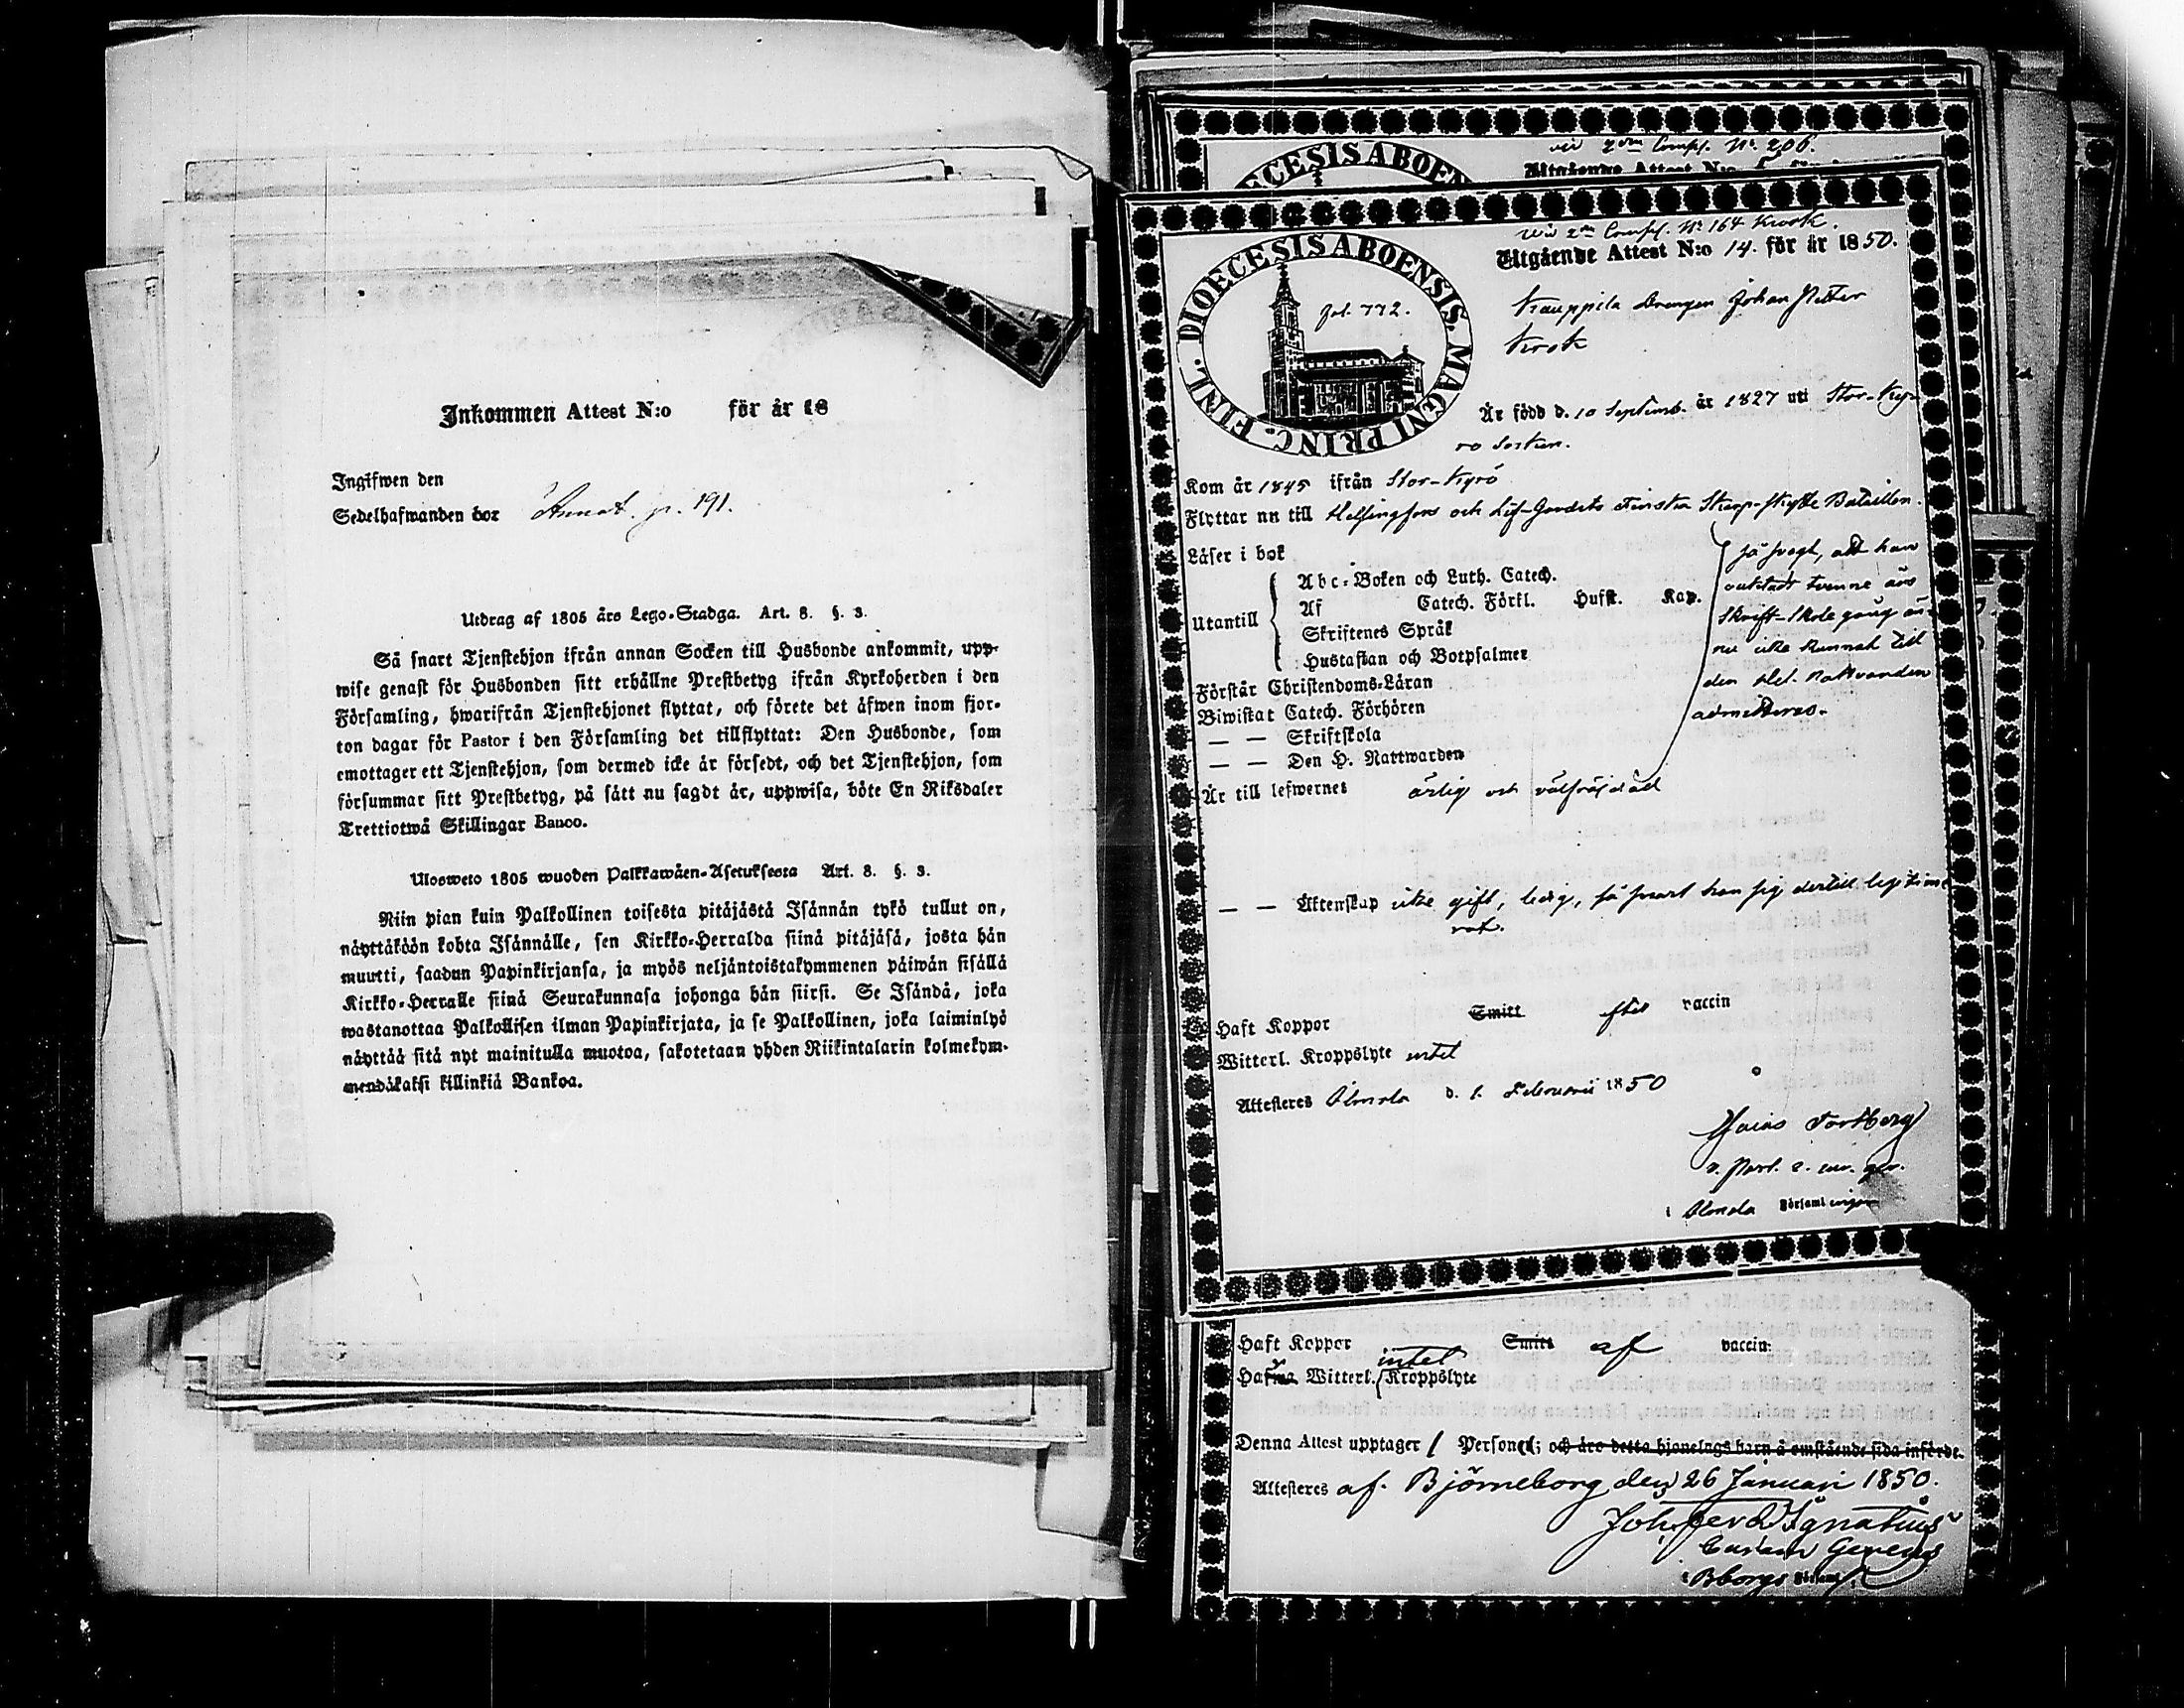 Inkommen Attest N:o för år 18
Ingifwen den
Sedelhafwanden bor Annot. p. 191.
Utdrag af 1805 års Lego-Stadga. Art. 8. §. 3.
Så snart Tjenstehjon ifrån annan Socken till Husbonde ankommit, upp-
wise genast för Husbonden sitt erhållne Prestbetyg ifrån Kyrkoherden i den
Församling, hwarifrån Tjenstehjonet flyttat, och förete det äfwen inom fjor-
ton dagar för Pastor i den Församling det tillflyttat: Den Husbonde, som
emottager ett Tjenstehjon, som dermed icke är försedt, och det Tjenstehjon, som
försummar sitt Prestbetyg, på sätt nu sagdt är, uppwisa, böte En Riksdaler
Trettiotwå Skillingar Banco.
Ulosweto 1805 wuoden Palkkawäen-Asetuksesta Art. 8. §. 3.
Niin pian kuin Palkollinen toisesta pitäjästä Isännän tykö tullut on,
näyttäköön kohta Isännälle, sen Kirkko-Herralda siinä pitäjäsä, josta hän
muutti, saadun Papinkirjansa, ja myös neljäntoistakymmenen päiwän sisällä
Kirkko-Herralle siinä Seurakunnasa johonga hän siirsi. Se Isändä, joka
wastanottaa Palkollisen ilman Papinkirjata, ja se Palkollinen, joka laiminlyö
näyttää sitä nyt mainitulla muotoa, sakotetaan yhden Riikintalarin kolmekym-
mendäkaksi killinkiä Bankoa.
DIOECESIS ABOEN
vid 2dra Compl. No. 206.
Utgående Attest N:o
vid 2a Compl. No 164 Krook.
Utgående Attest N:o 14. för år 1850.
DIOECESIS ABOENSIS. MAGNI PRINC. FINL.
fol. 772.
Kauppila Drengen Johan Petter
Krok
Är född d. 10 Septemb. år 1827 uti Stor-Ky-
ro Socken.
Kom år 1845 ifrån Stor-Kyrö
Flyttar nu till Helsingfors och Lif-Gardets Finska Skarp-skytte Bataillon.
Läser i bok
Utantill
Abc-Boken och Luth. Catech.
Af Catech. Förkl. Husst. Kap.
Skriftenes Språk
Hustaflan och Botpsalmer
Förstår Christendoms-Läran
Biwistat Catech. Förhören
— — Skriftskola
— — Den H. Nattwarden
så svagt, att han
oaktadt tvenne års
Skrift-Skole gång än-
nu icke kunnat till
den Hel. Nattvarden
admitteras.
Är till lefwernet ärlig och välfräjdad
— — Äktenskap icke gift, ledig, så snart han sig dertill legitime-
rat.
Haft Koppor Smitt efter vaccin
Witterl. Kroppslyte intet
Attesteres Ilmola d. 1. Februarii 1850
Forsberg
i Ilmola Församlingen
Haft Koppor Smitt af vaccin.
Hafwa Witterl. intet Kroppslyte
Denna Attest upptager 1 Person; och äro detta hjonelags barn å omstående sida införde.
Attesteres af. Björneborg den 26 Januari 1850.
Joh. Ferd Ignatius
Curam Gerens
i Bborgs Församl.